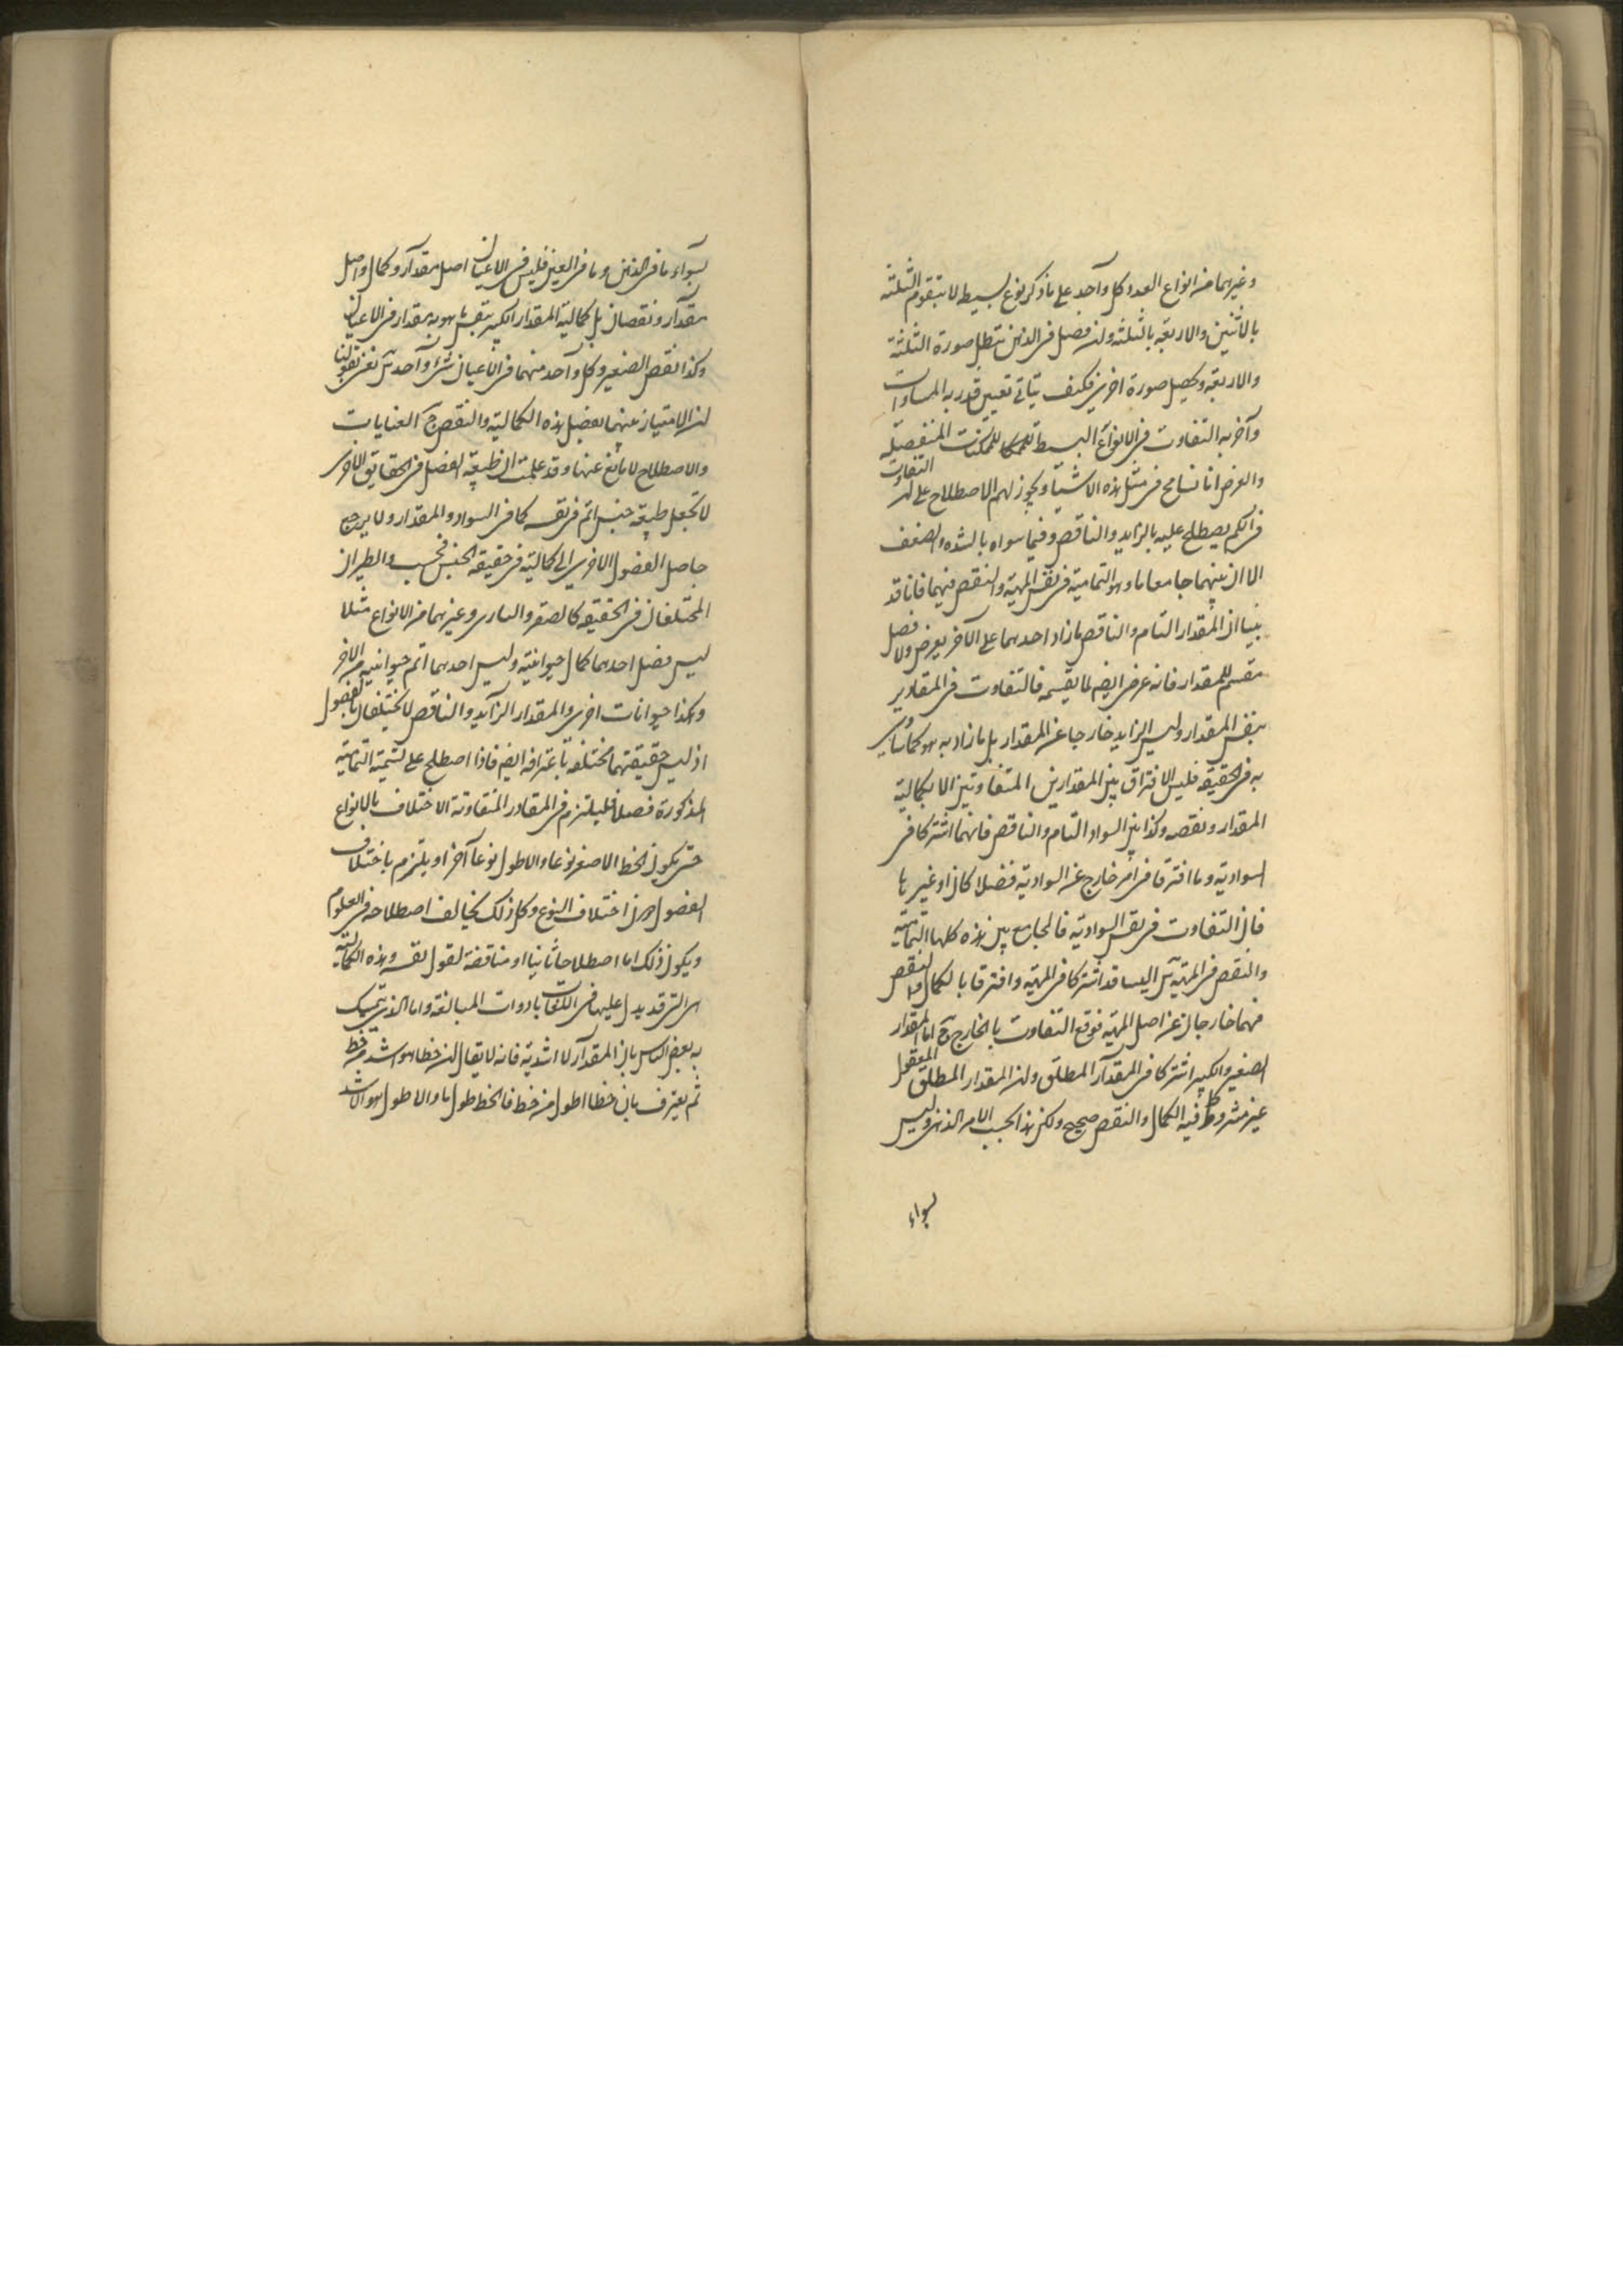 وغيرهما من انواع العدد وكل واحد على ما ذكر نوع بسيط لا يتقوم الثلثة
بالاثنين والاربعة بالثلثة وان فصل فى الذهن تبطل صورة الثلثة
والاربعة ويحصل صورة اخرى فكيف يتاتى تعيين قدر به المساوات
وآخر به التفاوت فى الانواع البسيطة المنفصلة
والغرض انا نسامح فى مثل هذه الاشيآء ويجوز لهم الاصطلاح على ان التفاوت
فى الكم يصطلح عليه بالزايد والناقص وفيما سواه بالشدة والضعف
الا ان بينهما جامعا ما وهو التمامية فى نفس المهية والنقص فيهما فانا قد
بينا ان المقدار التام والناقص ما زاد احدهما على الآخر بعرض ولا فصل
مقسم للمقدار فانه عرض ايضا لما يقسمه فالتفاوت فى المقادير
بنفس المقدار وليس الزايد خارجا عن المقدار بل ما زاد به هو كما ساوى
به فى الحقيقة فليس الافتراق بين المقدارين المتفاوتين الا بكمالية
المقدار ونقصه وكذا بين السواد التام والناقص فانهما اشتركا فى
السوادية وما افترقا فى امر خارج عن السوادية فصلا كان او غيرها
فان التفاوت فى نفس السوادية فالجامع بين هذه كلها التمامية
والنقص فى المهية س اليسا قد اشتركا فى المهية وافترقا بالكمال والنقص
فهما خارجان عن اصل المهية فوقع التفاوت بالخارج ج اما المقدار
الصغير والكبير اشتركا فى المقدار المطلق وان المقدار المطلق المعقول
غير مشروط فيه الكمال والنقص صحيح ولكن هذا بحسب الامر الذهنى وليس
سواء
سواء ما فى الذهن وما فى العين فليس فى الاعيان اصل مقدار وكمال واصل
مقدار ونقصان بل كمالية المقدار الكبير بنفس ما هو به مقدار فى الاعيان
وكذا نقص الصغير وكل واحد منهما فى الاعيان شىء واحد س نعنى بقولنا
ان الامتياز بينهما بفصل هذه الكمالية والنقص ج العنايات
والاصطلاح لا مانع عنها وقد علمت ان طبيعة الفصل فى الحقايق الاخرى
لا تجعل طبيعة جنس اتم فى نفسه كما فى السواد والمقدار ولا يرجع
حاصل الفصول الاخرى الى كمالية فى حقيقة الجنس فحسب والطيران
المختلفان فى الحقيقة كالصقر والبازى وغيرهما من الانواع مثلا
ليس فصل احدهما كمال حيوانيته وليس احدهما اتم حيوانية من الاخر
وهكذا حيوانات اخرى والمقدار الزآيد والناقص لا يختلفان بالفصول
اذ ليس حقيقتهما مختلفة باعترافه ايضا فاذا اصطلح على تسمية التمامية
المذكورة فصلا فليلتزم فى المقادر المتفاوتة الاختلاف بالانواع
حتى يكون الخط الاصغر نوعا والاطول نوعا آخر او يلتزم باختلاف
الفصول دون اختلاف النوع وكل ذلك يخالف اصطلاحه فى العلوم
ويكون ذلك اما اصطلاحا ثانيا او مناقضة لقول نفسه وهذه الكمالية
هى التى قد يدل عليها فى اللغات بادوات المبالغة واما الذى يتمسك
به بعض الناس بان المقدار لا اشدية فانه لا يقال ان خطا هو اشد من خط
ثم يعترف بان خطا اطول من خط فالخط طول ما والاطول هو الاشد